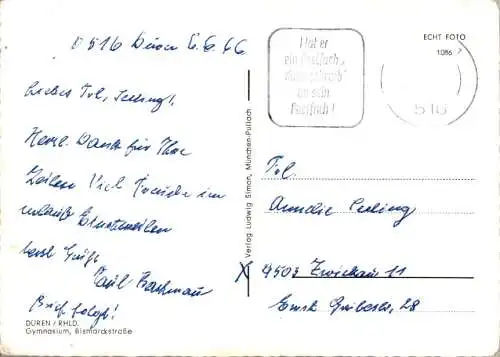 D 516 Düren 6.6.66
Liebes Frl. Seeling!
Herzl. Dank für Ihre
Zeilen Viel Freude im
herzl Grüße
Paul Bachmann
Brief folgt!
DÜREN / RHLD.
Gymnasium, Bismarckstraße
Verlag Ludwig Simon, München-Pullach
Hat er
ein Postfach,
dann schreib
an sein
Postfach!
ECHT FOTO
1086
516
Frl.
Annelie Seeling
X 9503 Zwickau 11
Ernst Grube str. 28